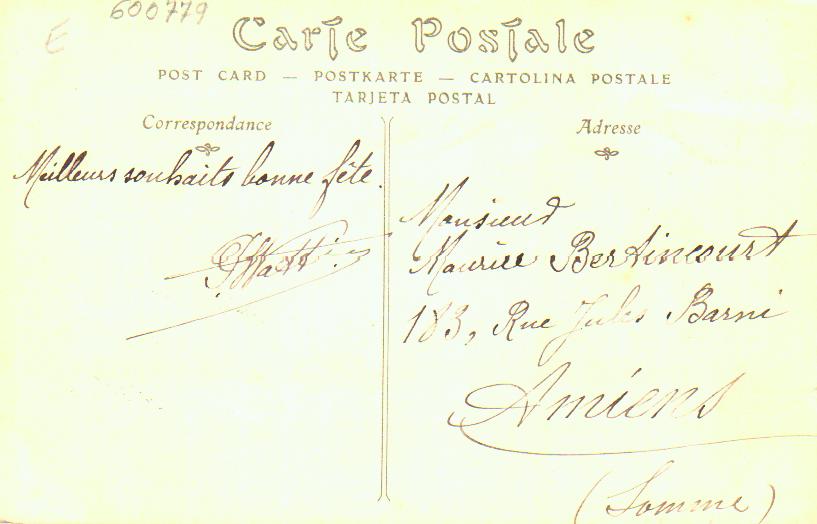 600779
E
Carte Postale
POST CARD — POSTKARTE — CARTOLINA POSTALE
TARJETA POSTAL
Correspondance
Meilleurs souhaits bonne fête.
Adresse
Monsieur
Maurice Bertincourt
183, Rue Jules Barni
Amiens
(Somme)